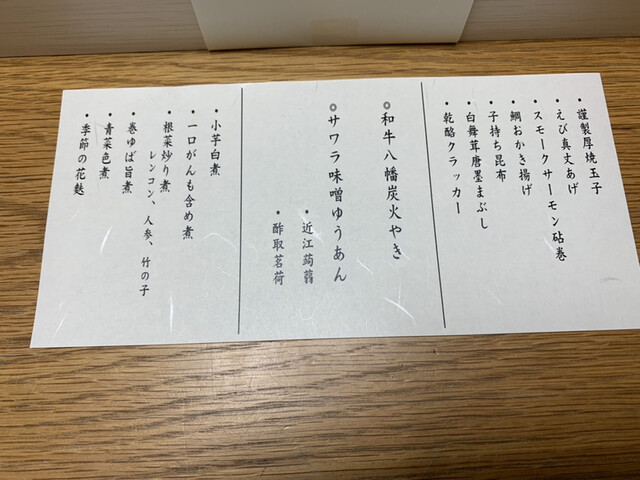 ・謹製厚焼玉子
・えび真丈あげ
・スモークサーモン砧巻
・鯛おかき揚げ
・子持ち昆布
・白舞茸唐墨まぶし
・乾酪クラッカー
◎和牛八幡炭火やき
◎サワラ味噌ゆうあん
・近江蒟蒻
・酢取茗荷
・小芋白煮
・一口がんも含め煮
・根菜炒り煮
レンコン、人参、竹の子
・巻ゆば旨煮
・青菜色煮
・季節の花麩